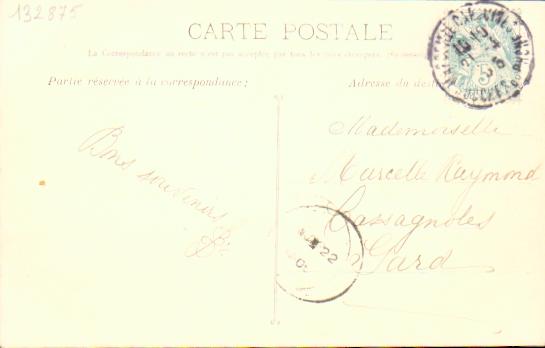 132875
CARTE POSTALE
La Correspondance au recto n'est pas acceptée par tous les pays étrangers.
Partie réservée à la correspondance;
Adresse du dest
Bons souvenirs
Mademoiselle
Marcelle Raymond
Cassagnoles
Gard
22
5